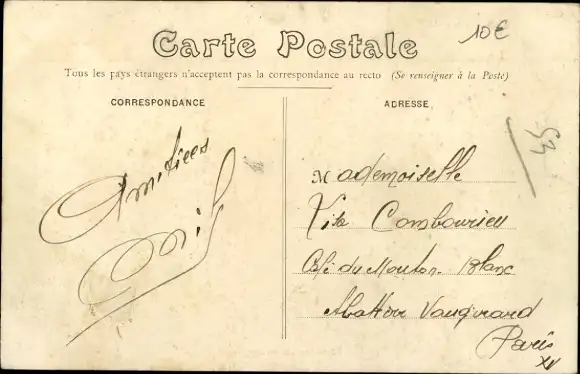 10€
Carte Postale
Tous les pays étrangers n'acceptent pas la correspondance au recto (Se renseigner à la Poste)
CORRESPONDANCE
ADRESSE
Amitiées
Mademoiselle
Combourieu
Café du Mouton Blanc
Abattoir Vaugirard
Paris
XV